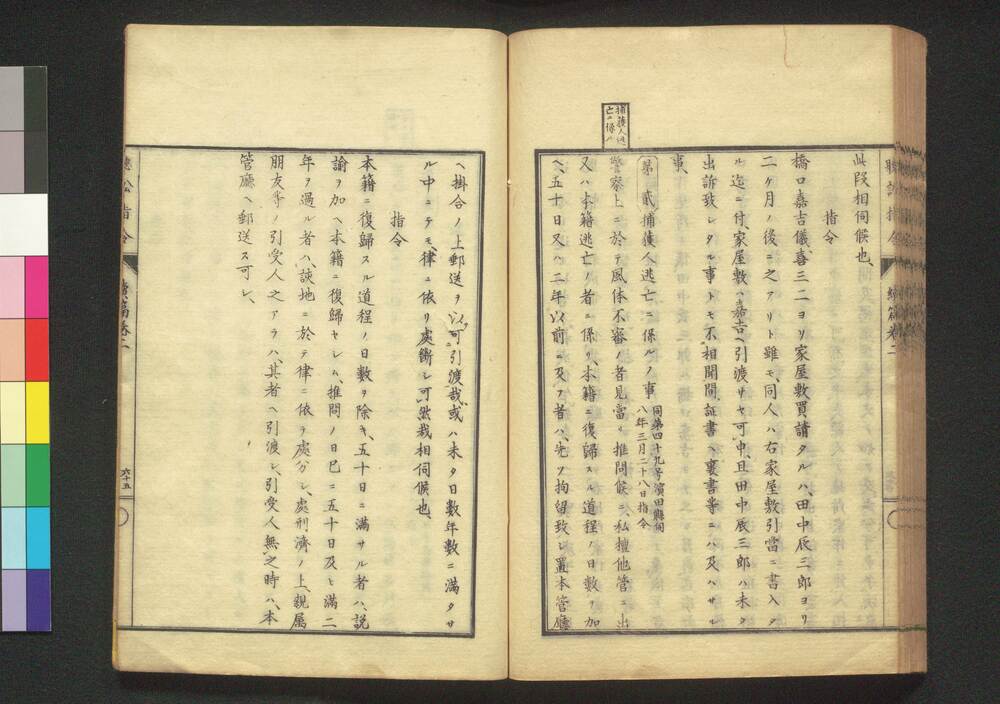 此段相伺候也、
指令
橋口嘉吉儀、喜三二ヨリ家屋敷買請タルハ、田中辰三郎ヨリ
二ケ月ノ後ニ之アリト雖モ、同人ハ右家屋敷引當ニ書入タ
ル迄ニ付、家屋敷ハ嘉吉ヘ引渡サセ可申、且田中辰三郎ハ未タ
出訴致レタル事トモ不相聞間、証書ヘ裏書等ニハ及ハサル
事、
捕獲人逃亡ニ係ル
第貳捕獲人逃亡ニ係ルノ事 同第四十九号濱田縣伺
八年三月二十八日指令
警察上ニ於テ風体不審ノ者見當リ推問候ニ、私擅他管ニ出
又ハ本籍逃亡ノ者ニ係リ、本籍ニ復歸スル道程ノ日數ヲ加
ヘ、五十日又ハ二年以前ニ及フ者ハ、先ツ拘留致シ置本管廳
ヘ掛合ノ上郵送ヲ以可引渡哉、或ハ未タ日數年數ニ滿タサ
ル中ニテモ、律ニ依リ處斷シ可然哉相伺候也、
指令
本籍ニ復歸スル道程ノ日數ヲ除キ、五十日ニ滿サル者ハ、說
諭ヲ加ヘ本籍ニ復歸セシム、推問ノ日已ニ五十日及ヒ滿二
年ヲ過ル者ハ、該地ニ於テ律ニ依テ處分シ、處刑濟ノ上、親屬
朋友等ノ引受人之アラハ、其者ヘ引渡シ、引受人無之時ハ、本
管廳ヘ郵送ス可シ、
聽訟指令
續篇卷二
六十五